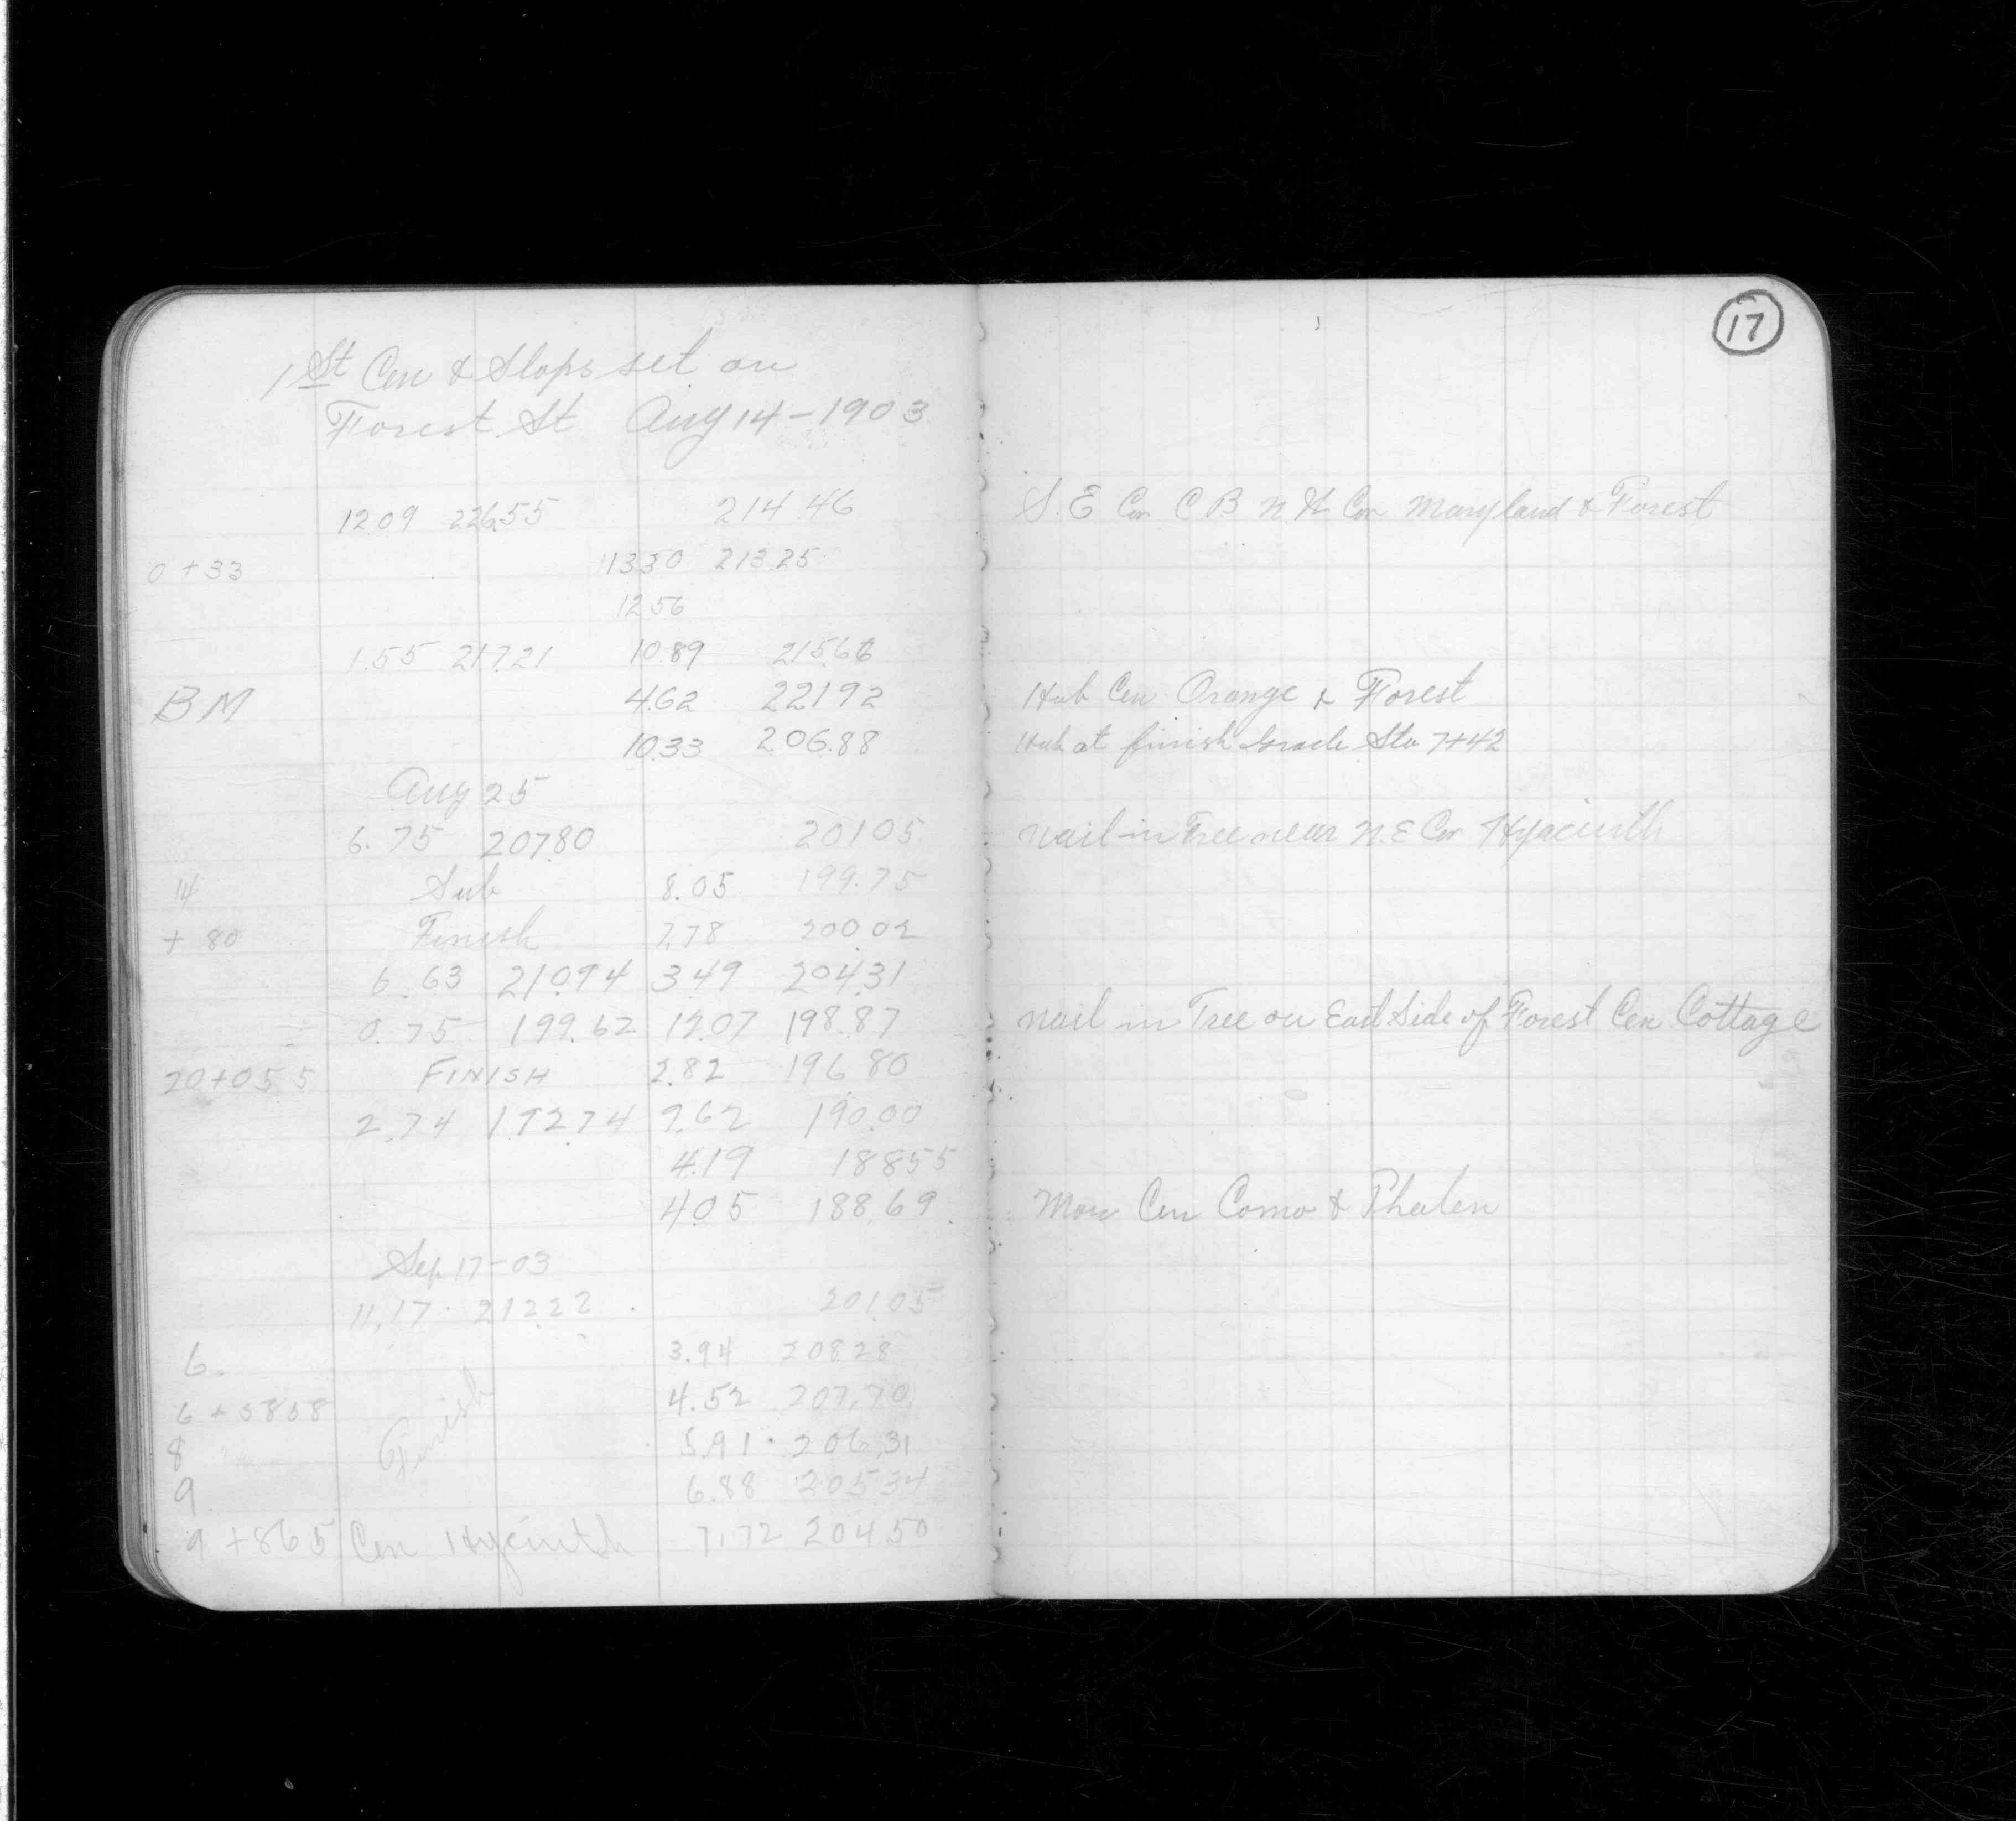 17
1st Cen & Slops set on
Forest St Aug 14-1903
1209 226.55 214.46 S. E Cor C B N W Cor Maryland & Forest
0+33 1330 213.25
1256
1.55 217.21 10.89 215.66
BM 4.62 22192 Hub Cen Orange & Forest
10.33 206.88 Hub at finish Grade Sta 7+42
Aug 25
6.75 207.80 20105 Nail in Tree near N.E Cor Hyacinth
14 Sub 8.05 199.75
+80 Finish 7.78 200.02
6.63 210.94 3.49 204.31
0.75 199.62 12.07 198.87 Nail in Tree on East Side of Forest Cen Cottage
20+055 FINISH 2.82 196.80
2.74 192.74 9.62 190.00
4.19 18855
4.05 188.69 Mon Cen Como & Phalen
Sep 17-03
11.17 212.22 201.05
6. 3.94 208.28
6+5858 Finish 4.52 207.70
8 5.91 206.31
9 6.88 205.34
9+865 Cen Hycinth 7.72 204.50